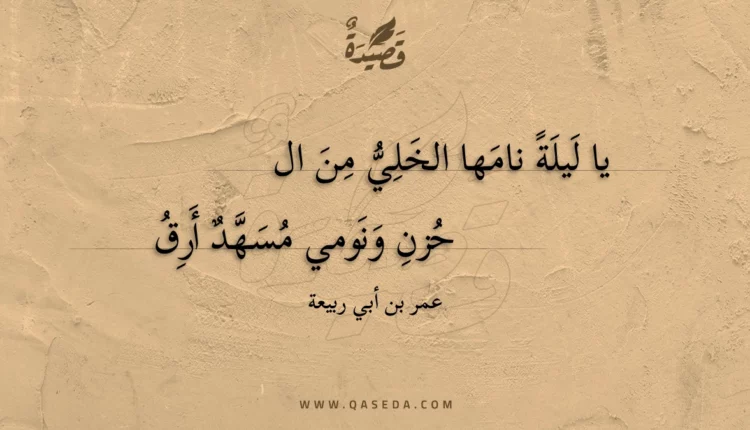 قَصِيدَةٌ
يا لَيلَةً نامَها الخَلِيُّ مِنَ ال
حُزنِ وَنَومي مُسَهَّدٌ أَرِقُ
عمر بن أبي ربيعة
WWW.QASEDA.COM